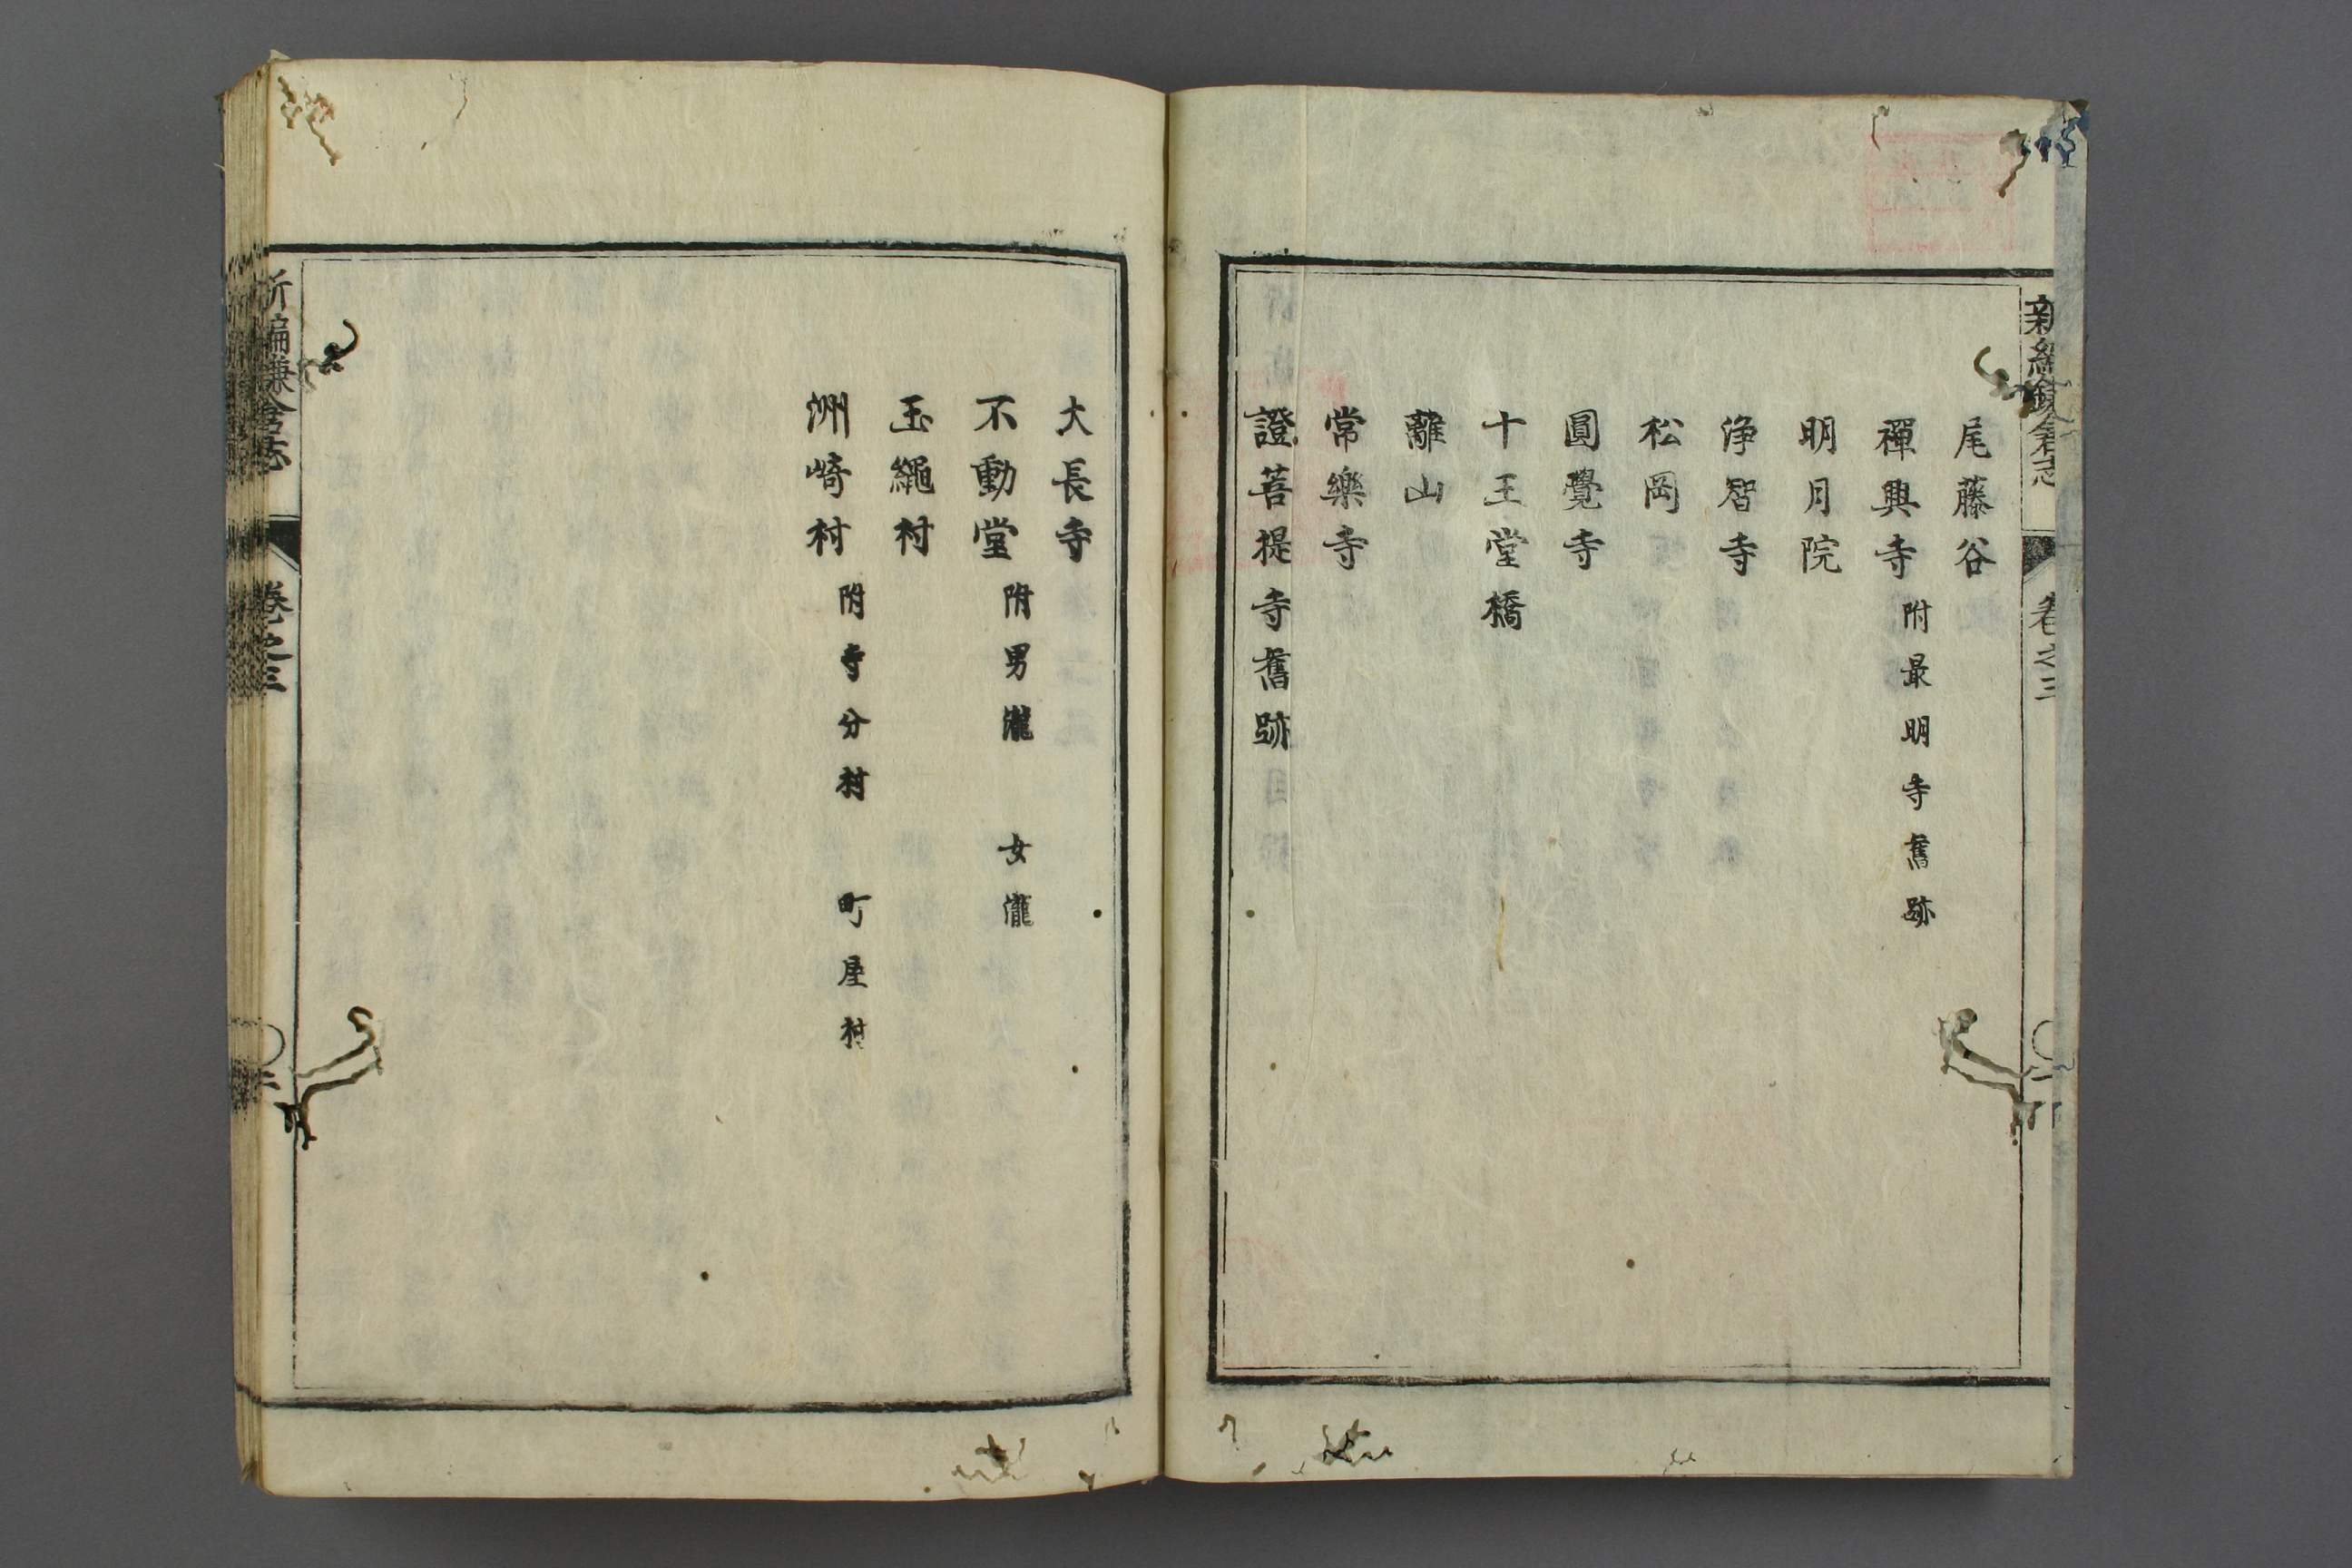 新編鎌倉志 卷之三 〇一
尾藤谷
禪興寺 附最明寺舊跡
明月院
浄智寺
松岡
圓覺寺
十王堂橋
離山
常樂寺
證菩提寺舊跡
大長寺
不動堂 附男瀧 女瀧
玉繩村
洲崎村 附寺分村 町屋村
新編鎌倉志 卷之三 〇二